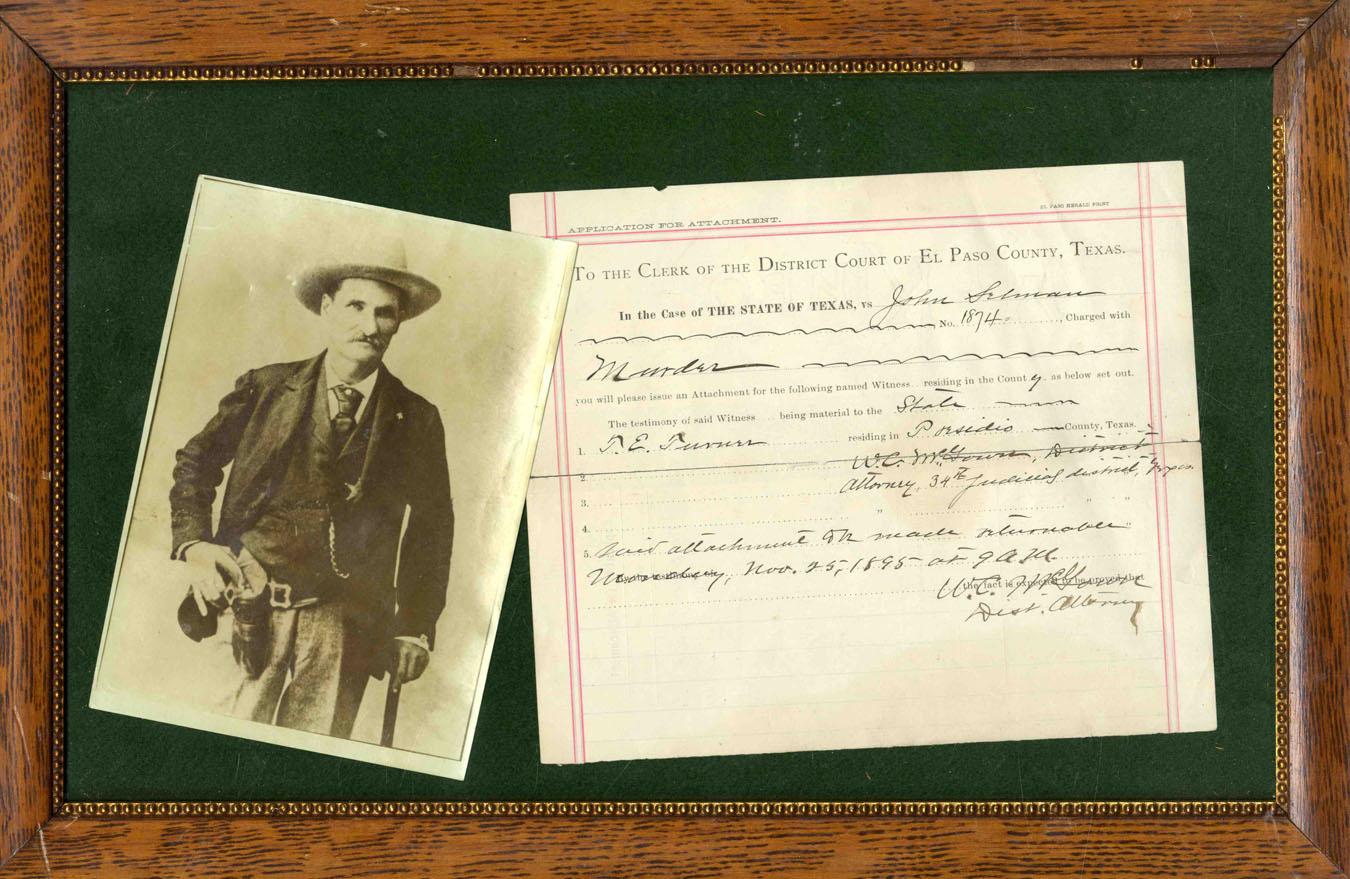 APPLICATION FOR ATTACHMENT.
EL PASO HERALD PRINT
TO THE CLERK OF THE DISTRICT COURT OF EL PASO COUNTY, TEXAS.
In the Case of THE STATE OF TEXAS, vs John Selman
No. 1874 , Charged with
Murder
you will please issue an Attachment for the following named Witness residing in the County as below set out.
The testimony of said Witness being material to the State
1. T. E. Turner residing in Presidio County, Texas.
2. W.C. McGown, District
3. Attorney, 34th Judicial district, Texas
4. " " "
5. Said attachment to be made returnable
Monday, Nov. 25, 1895 at 9 A.M.
the fact is expected to be proved that
W.C. McGown
Dist. Attorney